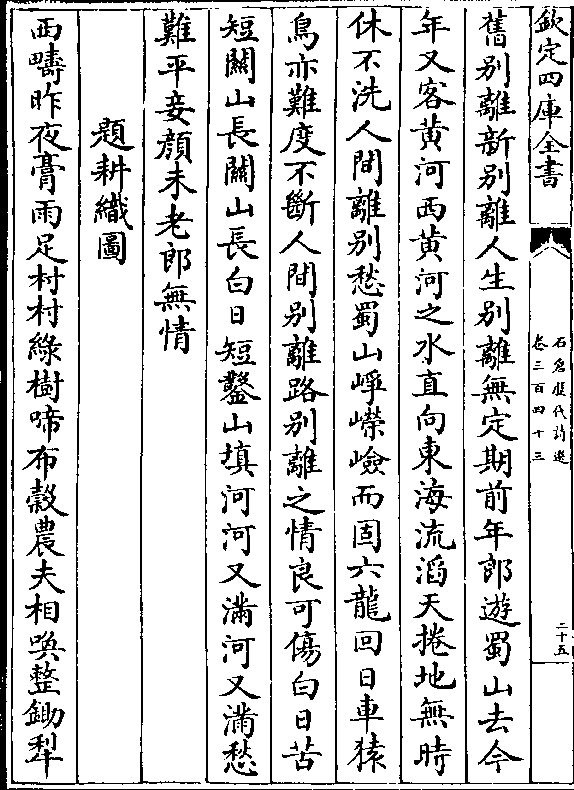 欽定四庫全書
石倉歷代詩選
卷三百四十三
二十五
舊别離新别離人生别離無定期前年郎遊蜀山去今
年又客黄河西黄河之水直向東海流滔天捲地無時
休不洗人間離别愁蜀山崢嶸嶮而固六龍回日車猿
鳥亦難度不斷人間别離路别離之情良可傷白日苦
短關山長關山長白日短鑿山填河河又滿河又滿愁
難平妾顔未老郎無情
題耕織圖
西疇昨夜膏雨足村村綠樹啼布穀農夫相喚整鋤犁